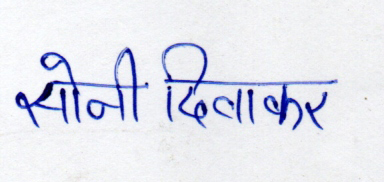 सोनी दिवाकर